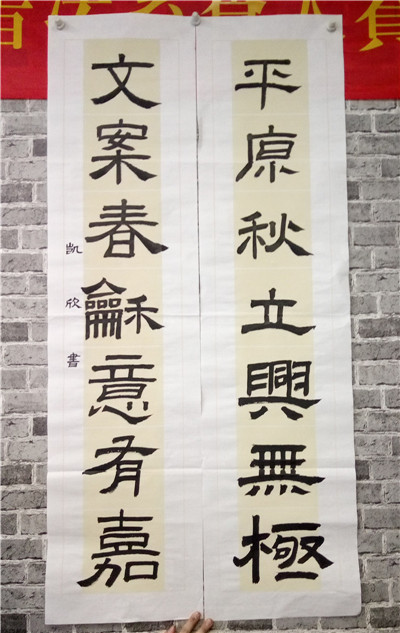 平原秋立興無極
文案春龢意有嘉
凱欣書